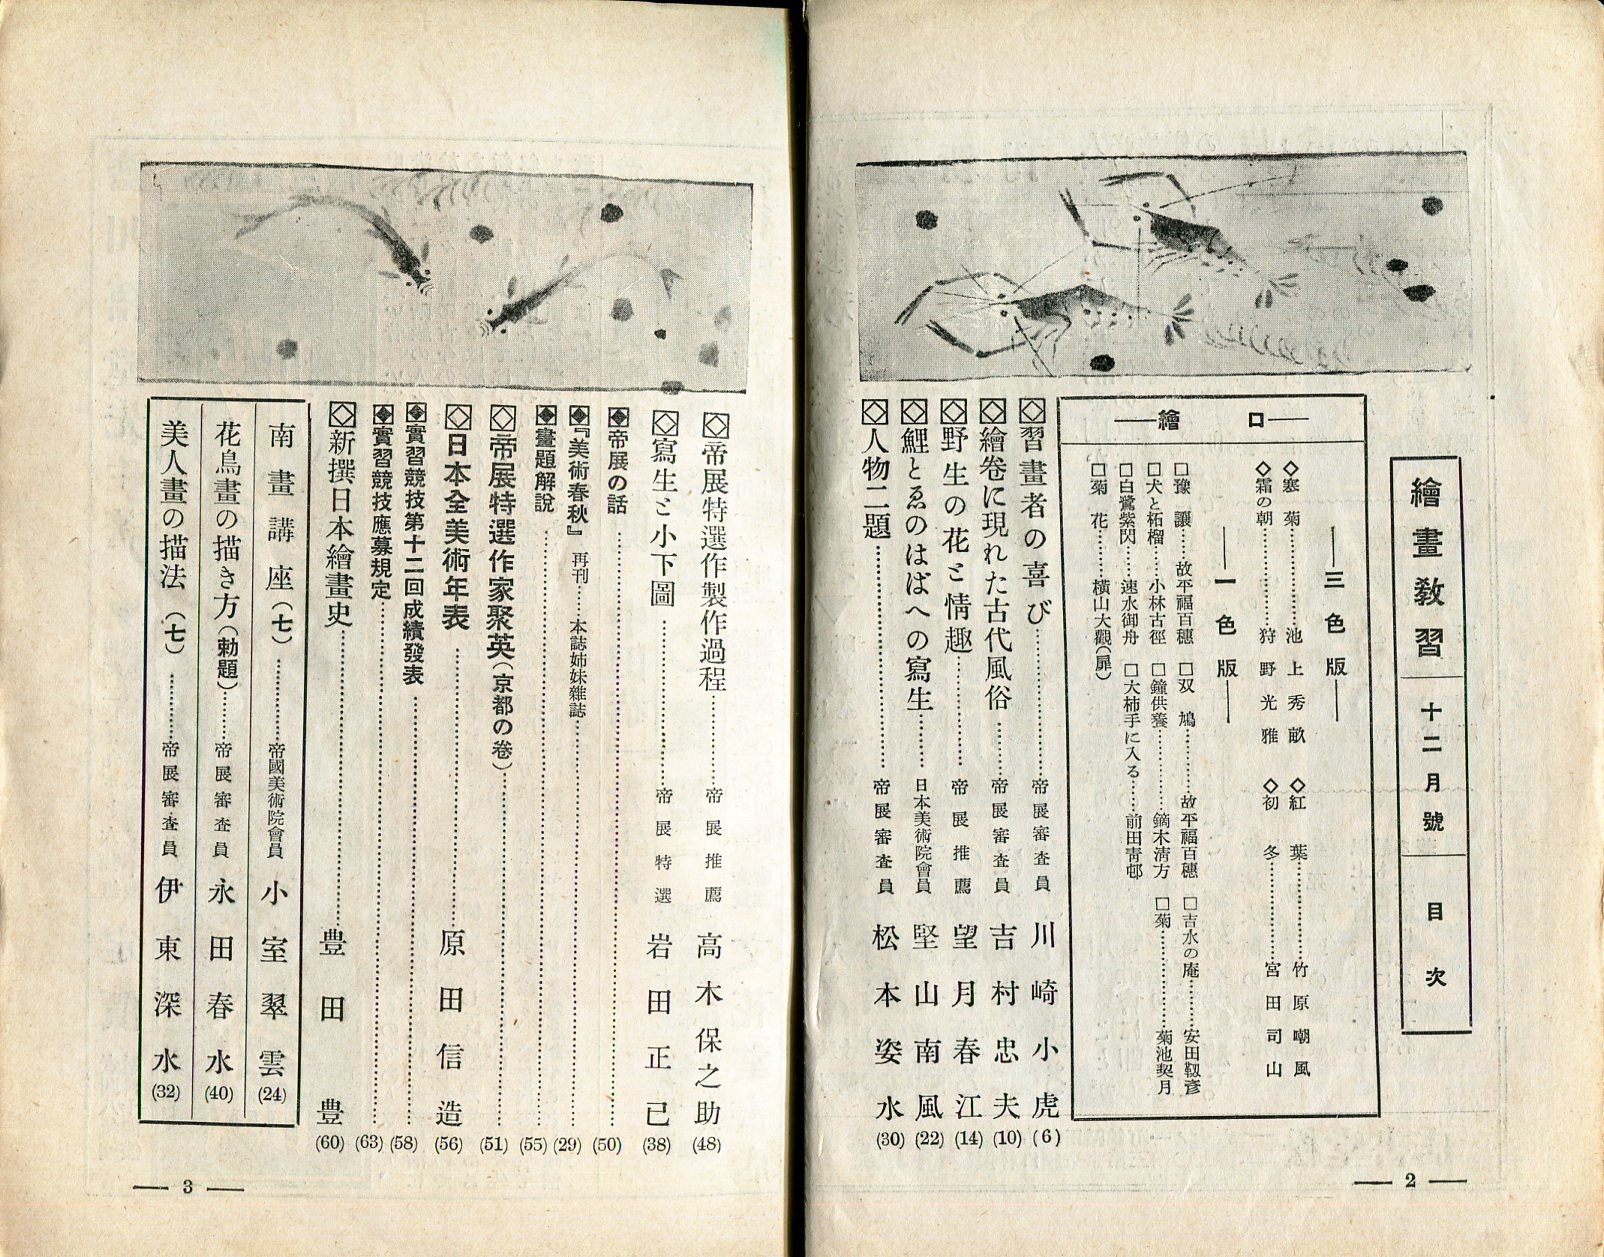 繪畫敎習 十二月號 目次
口繪
三色版
◇寒菊……池上秀畝 ◇紅葉……竹原嘲風
◇霜の朝……狩野光雅 ◇初冬……宮田司山
一色版
□豫讓……故平福百穗 □双鳩……故平福百穗 □吉水の庵……安田靫彦
□犬と柘榴……小林古徑 □鐘供養……鏑木淸方 □菊……菊池契月
□白鷺紫閃……速水御舟 □大柿手に入る……前田靑邨
□菊花……橫山大觀(扉)
習畫者の喜び……帝展審査員 川崎小虎 (6)
繪卷に現れた古代風俗……帝展審査員 吉村忠夫 (10)
野生の花と情趣……帝展推薦 望月春江 (14)
鯉とゑのはばへの寫生……日本美術院會員 堅山南風 (22)
人物二題……帝展審査員 松本姿水 (30)
— 2 —
帝展特選作製作過程……帝展推薦 高木保之助 (48)
寫生と小下圖……帝展特選 岩田正己 (38)
帝展の話…… (50)
『美術春秋』再刊……本誌姉妹雜誌…… (29)
畫題解說…… (55)
帝展特選作家聚英(京都の卷)…… (51)
日本全美術年表……原田信造 (56)
實習競技第十二回成績發表…… (58)
實習競技應募規定…… (63)
新撰日本繪畫史……豊田豊 (60)
南畫講座(七)……帝國美術院會員 小室翠雲 (24)
花鳥畫の描き方(勅題)……帝展審査員 永田春水 (40)
美人畫の描法(七)……帝展審査員 伊東深水 (32)
— 3 —